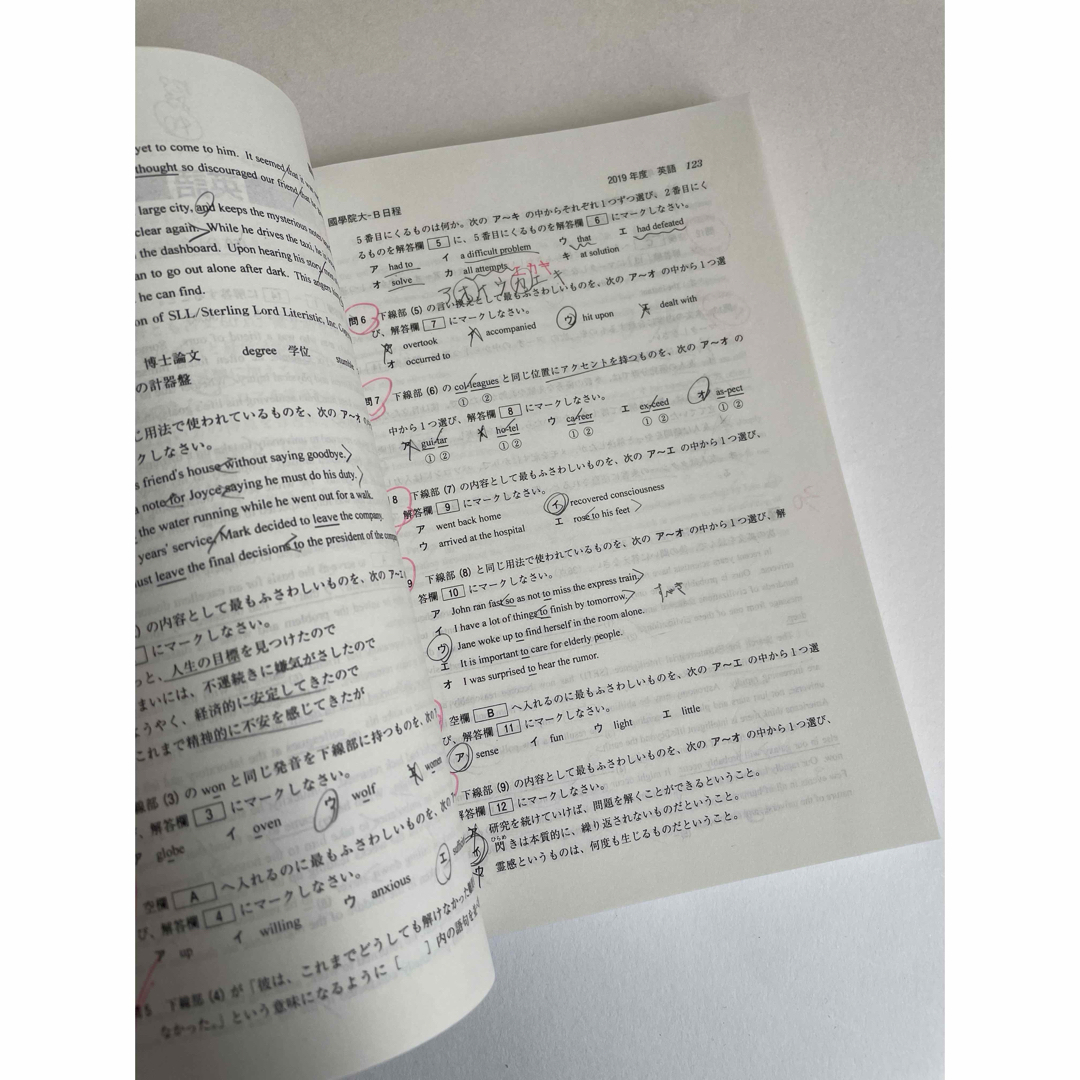 yet to come to him. It seemed that it
thought so discouraged our friend that he
large city, and keeps the mysterious notes
clear again. While he drives the taxi, he
the dashboard. Upon hearing his story,
an to go out alone after dark. This angers
he can find.
on of SLL/Sterling Lord Literistic, Inc.
博士論文 degree 学位
の計器盤
じ用法で使われているものを、次の ア〜オ
クしなさい。
s friend's house without saying goodbye.
a note for Joyce saying he must do his duty.
the water running while he went out for a walk.
years' service, Mark decided to leave the company.
ust leave the final decisions to the president of the
の内容として最もふさわしいものを、次の ア〜エ
にマークしなさい。
っと、人生の目標を見つけたので
まいには、不運続きに嫌気がさしたので
ようやく、経済的に安定してきたので
これまで精神的に不安を感じてきたが
線部 (3) の won と同じ発音を下線部に持つものを、次の
、解答欄 3 にマークしなさい。
globe イ oven ウ wolf
空欄 A へ入れるのに最もふさわしいものを、次の
び、解答欄 4 にマークしなさい。
ア up イ willing ウ anxious エ
5 下線部 (4) が「彼は、これまでどうしても解けなかった
なかった。」という意味になるように [ ] 内の語句を
國學院大-B日程 2019 年度 英語 123
5番目にくるものは何か。次の ア〜キ の中からそれぞれ1つずつ選び、2番目にく
るものを解答欄 5 に、5番目にくるものを解答欄 6 にマークしなさい。
ア had to イ a difficult problem ウ that エ had defeated
オ solve カ all attempts キ at solution
エ カ キ
ア オ イ ウ カ エ キ
問6 下線部 (5) の言い換えとして最もふさわしいものを、次の ア〜オ の中から1つ選
び、解答欄 7 にマークしなさい。
overtook accompanied ウ hit upon dealt with
オ occurred to
問7 下線部 (6) の colleagues と同じ位置にアクセントを持つものを、次の ア〜オ の
① ②
中から1つ選び、解答欄 8 にマークしなさい。
ア gui-tar ho-tel ウ ca-reer エ ex-ceed オ as-pect
① ② ① ② ① ② ① ② ① ②
8 下線部 (7) の内容として最もふさわしいものを、次の ア〜エ の中から1つ選び、
解答欄 9 にマークしなさい。
ア went back home イ recovered consciousness
ウ arrived at the hospital エ rose to his feet
9 下線部 (8) と同じ用法で使われているものを、次の ア〜オ の中から1つ選び、解
答欄 10 にマークしなさい。
ア John ran fast so as not to miss the express train.
イ I have a lot of things to finish by tomorrow.
ウ Jane woke up to find herself in the room alone.
エ It is important to care for elderly people.
オ I was surprised to hear the rumor.
空欄 B へ入れるのに最もふさわしいものを、次の ア〜エ の中から1つ選
び、解答欄 11 にマークしなさい。
ア sense イ fun ウ light エ little
下線部 (9) の内容として最もふさわしいものを、次の ア〜オ の中から1つ選び、
解答欄 12 にマークしなさい。
研究を続けていけば、問題を解くことができるということ。
ひらめ
イ 閃きは本質的に、繰り返されないものだということ。
ウ 霊感というものは、何度も生じるものだということ。